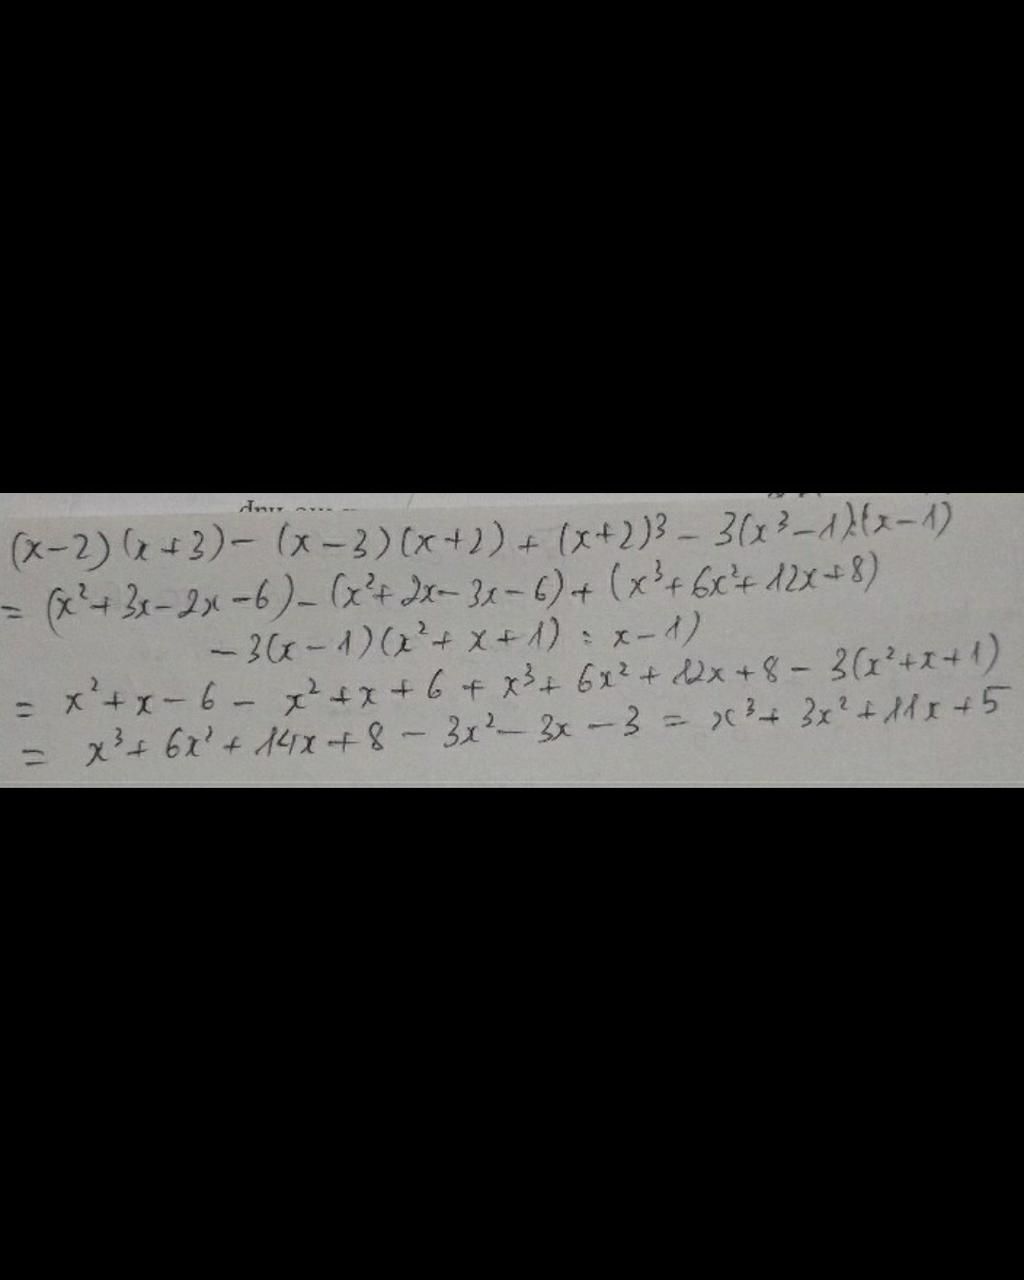 (x-2)(x+3) - (x-3)(x+2) + (x+2)³ - 3(x³-1):(x-1)
= (x²+3x-2x-6) - (x²+2x-3x-6) + (x³+6x²+12x+8)
-3(x-1)(x²+x+1) : x-1)
= x²+x-6 - x²+x+6 + x³+6x²+12x+8 - 3(x²+x+1)
= x³+6x²+14x+8 - 3x²-3x-3 = x³+3x²+11x+5